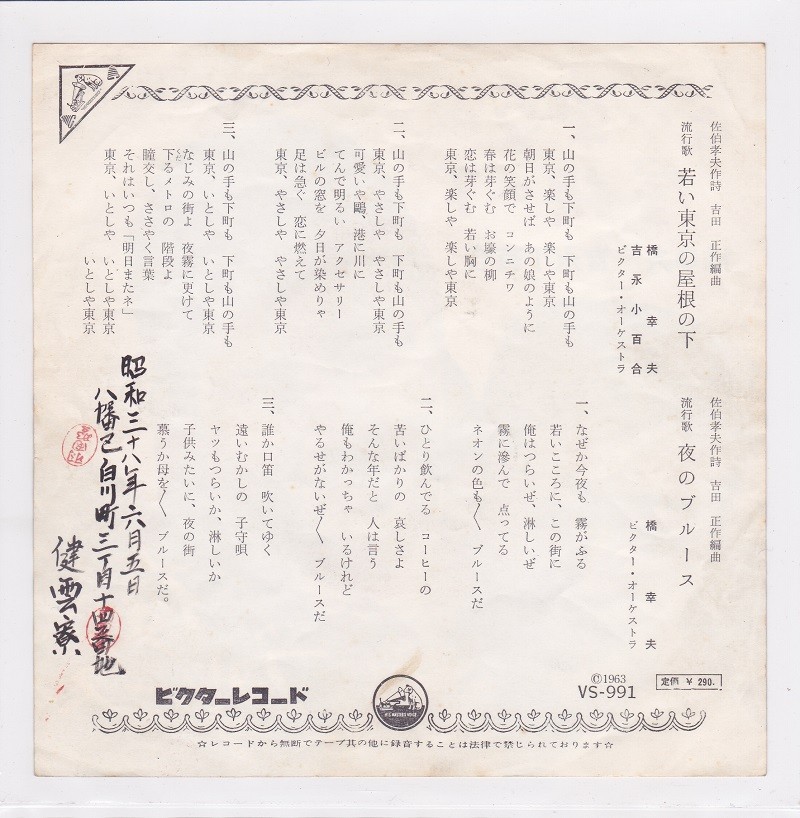 佐伯孝夫作詩 吉田 正作編曲
流行歌 若い東京の屋根の下
橋 幸夫
吉永小百合
ビクター・オーケストラ
一、山の手も下町も 下町も山の手も
東京、楽しや 楽しや東京
朝日がさせば あの娘のように
花の笑顔で コンニチワ
春は芽ぐむ お濠の柳
恋は芽ぐむ 若い胸に
東京、楽しや 楽しや東京
二、山の手も下町も 下町も山の手も
東京、やさしや やさしや東京
可愛いや鷗、港に川に
てんで明るい アクセサリー
ビルの窓を 夕日が染めりゃ
足は急ぐ 恋に燃えて
東京、やさしや やさしや東京
三、山の手も下町も 下町も山の手も
東京、いとしや いとしや東京
なじみの街よ 夜霧に更けて
下るメトロの 階段よ
くだ
瞳交し、ささやく言葉
それはいつも「明日またネ」
東京、いとしや いとしや東京
いとしや東京
佐伯孝夫作詩 吉田 正作編曲
流行歌 夜のブルース
橋 幸夫
ビクター・オーケストラ
一、なぜか今夜も 霧がふる
若いこころに、この街に
俺はつらいぜ、淋しいぜ
霧に滲んで 点ってる
ネオンの色も〱 ブルースだ
二、ひとり飲んでる コーヒーの
苦いばかりの 哀しさよ
そんな年だと 人は言う
俺もわかっちゃ いるけれど
やるせがないぜ〱 ブルースだ
三、誰か口笛 吹いてゆく
遠いむかしの 子守唄
ヤツもつらいか、淋しいか
子供みたいに、夜の街
慕うか母を〱 ブルースだ。
昭和三十八年六月五日
八幡区白川町三丁目十四番地
健雲寮
ビクターレコード
HIS MASTER'S VOICE
©1963
VS-991
定価 ¥ 290.
☆レコードから無断でテープ其の他に録音することは法律で禁じられております☆